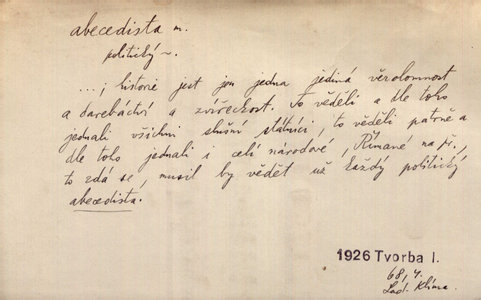 abecedista m.
politický ~.
...; historie jest jen jedna jediná věrolomnost
a darebáctví a zvířeckost. To věděli a dle toho
jednali všichni slušní státníci, to věděli patrně a
dle toho jednali i celí národové, Římané na př.,
to zdá se, musil by vědět už každý politický
abecedista.
1926 Tvorba I.
68, 4.
Lad. Klíma.